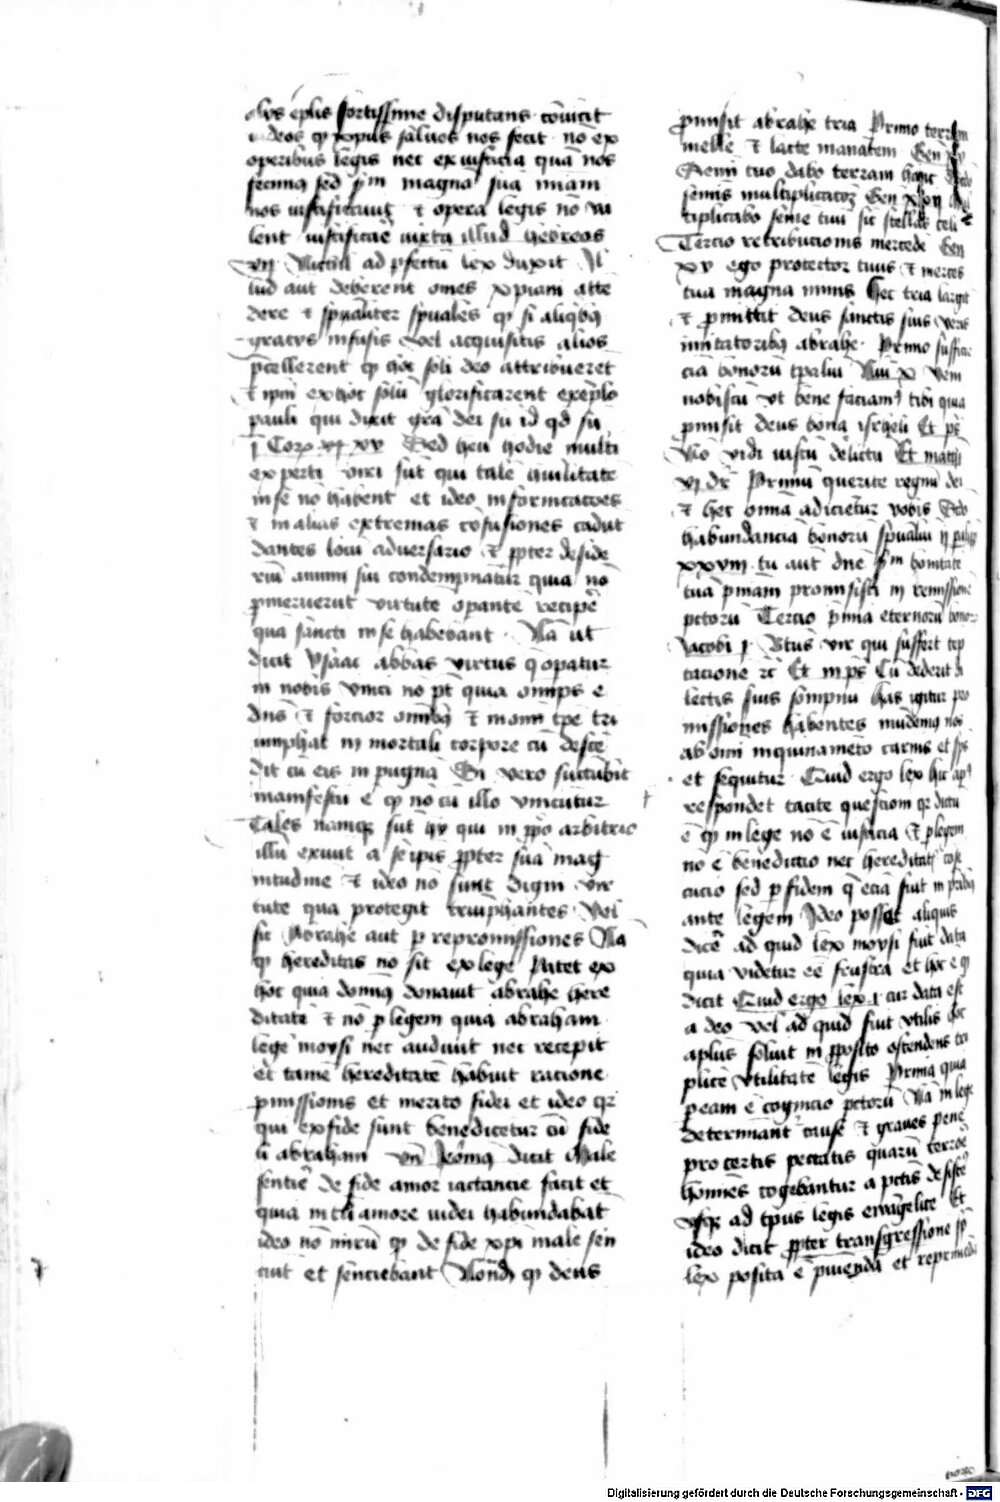 eplis fortissime disputans cōuicit
deos qͥ xpus saluos nos fecit nō ex
operibus legis nec ex iusticia quā nos
fecimꝰ sed ẜm magnā suā miām
nos iustificauit et opera legis nō va
lent iustificare iuxta illud hebreos
vij Nichil ad ꝑfectū lex duxit Il
lud aut deberent omēs xpiani atte
dere et spūaliter spūales qͥ si aliqͥbꝰ
gracijs infusis vel acquisitis alios
pͥcellerent qͥ hoc soli deo attribueret
et ipm̄ ex hoc solū glorificarent exēplo
pauli qui dixit grā dei sū id qd sū
j Corꝝ xv Sed heu hodie multi
experti viri sūt qui talē hūilitatē
in se nō habent et ideo in fornicacōes
et in alias extremas cōfusiones cadūt
dantes locū aduersario et ꝓpter deside
riū animi sui condempnātur quia nō
ꝓmeruerūt virtutē opantē recipē
quā sancti in se habebant Nā ut
dicit ysaac abbas virtus q̄ opatur
in nobis vinci nō pt̄ quia omīps ē
dn̄s et forcior omībꝰ et in omī tpē tri
umphat in mortali corpore cū descē
dit cū eis in pugnā Si vero succūbit
manifestū ē qͥ nō cū illo vincūtur
Tales namqꝫ sūt hij qui in ꝓpo arbitrio
illū exuūt a se ipis ꝓpter suā mag
nitudinē et ideo nō sunt digni vir
tute quā protegit triūphantes Vel
sic Abrahe aut ꝑ repromissiones Nā
qͥ hereditas nō sit ex lege Patet ex
hoc quia dominꝰ donauit abrahe here
ditatē et nō ꝑ legem quia abraham
legē moysi nec audiuit nec recepit
et tamē hereditatē habuit racione
ꝓmissionis et merito fidei et ideo qꝛ
qui ex fide sunt benedicētur cū fide
li abraham Vn̄ Jeronimꝰ dicit Male
sentire de fide amor iactancie facit et
quia in tali amore iudei habundabāt
ideo nō mirū qͥ de fide xpi male sen
ciūt et senciebant Notandū qͥ deus
ꝓmisit abrahe tria Primo terram
melle et lacte manātem Gen xv
Semini tuo dabo terram hanc Scdo
seminis multiplicacoꝫ Gen xxij
tiplicabo semē tuū sic stellas celi
Tercio retribucionis mercedē Gen
xv ego protector tuus et merces
tua magna nimis Hec tria largit
et ꝓmittit deus sanctis suis veris
imitatoribꝰ abrahe Primo suffici
ciā bonorū tꝑaliū Nūi x Veni
nobiscū vt bene faciamꝰ tibi quia
ꝓmisit deus bona israheli Et ps
Nō vidi iustū delictū Et mathi
vj dr̄ Primū querite regnū dei
et hec omnia adicientur vobis Scdo
habundanciā bonorū spūaliū ij paralip
xxxvij tu aut dn̄e ẜm bonitatē
tuā pniām promisisti in remissionē
pctorū Tercio pmia eternorū bonor
Jacobi j Btūs vir qui suffert tep
tacionē ꝛc Et in ps Cū dederit di
lectis suis sompnū has igitur pro
missiones habentes mūdemꝰ nos
ab omi inquinamēto carnis et sps
et sequitur Quid ergo lex hic apls
respondet tacite questioni qꝛ dictū
ē qͥ in lege nō ē iusticia et ꝑ legem
nō ē benedictio nec hereditatis cōse
cucio sed ꝑ fidem q̄ eciā fuit in pribꝰ
ante legem Ideo posset aliquis
dicē ad quid lex moysi fuit data
quia videtur ēē frustra et hoc ē qͥ
dicit Quid ergo lex j cur data est
a deo vel ad quid fuit vtilis hoc
apls̄ soluit in ꝓposito ostendens tri
plicē vtilitatē legis Prima quia
ꝑ eam ē cognicio pctorū Nā in lege
determinant͛ cause et graues pene
pro certis peccatis quarū terrore
homines cogebantur a pctis desistē
vsqꝫ ad tꝑus legis ewāgelice Et
ideo dicit ꝓpter transgressionē
lex posita ē ꝓuenidā et reprimēdā